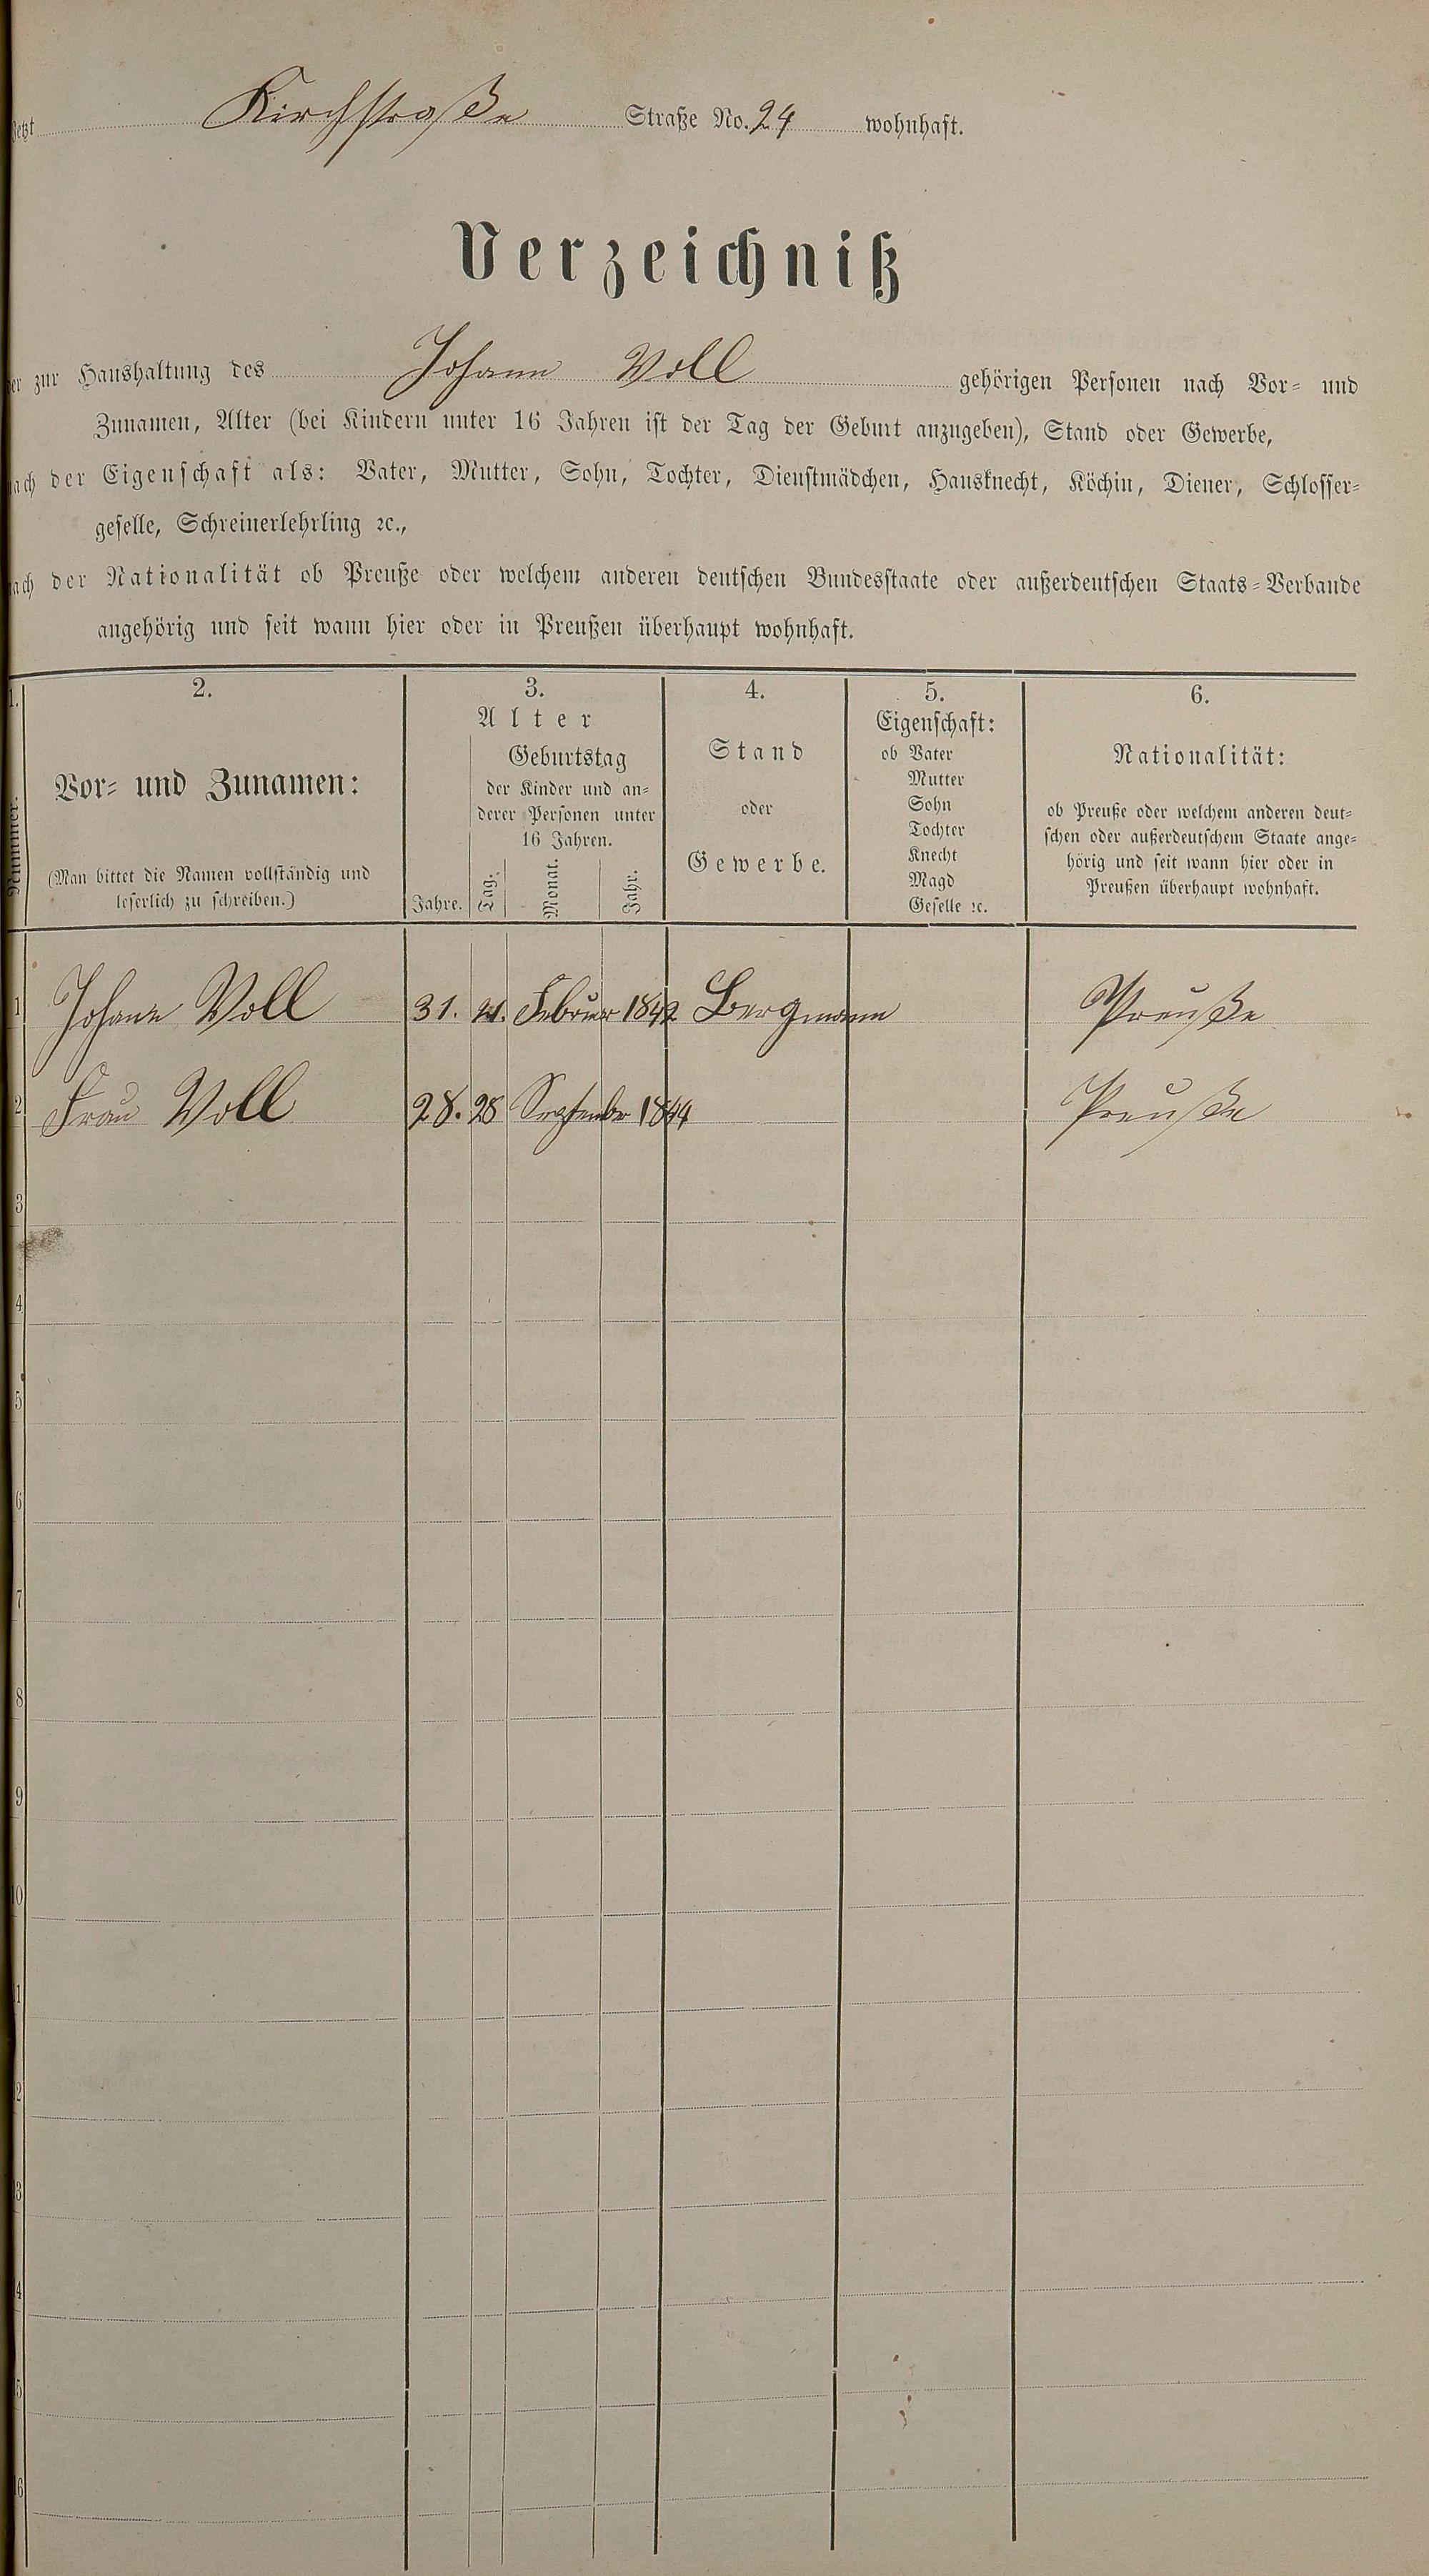 jetzt Kirchstraße Straße No. 24 wohnhaft.
Verzeichniß
der zur Haushaltung des Johann Voll gehörigen Personen nach Vor- und
Zunamen, Alter (bei Kindern unter 16 Jahren ist der Tag der Geburt anzugeben), Stand oder Gewerbe,
nach der Eigenschaft als: Vater, Mutter, Sohn, Tochter, Dienstmädchen, Hausknecht, Köchin, Diener, Schlosser-
geselle, Schreinerlehrling ꝛc.,
nach der Nationalität ob Preuße oder welchem anderen deutschen Bundesstaate oder außerdeutschen Staats-Verbande
angehörig und seit wann hier oder in Preußen überhaupt wohnhaft.
1.
Nummer.
2.
Vor- und Zunamen:
(Man bittet die Namen vollständig und
leserlich zu schreiben.)
3.
Alter
Jahre.
Geburtstag
der Kinder und an-
derer Personen unter
16 Jahren.
Tag.
Monat.
Jahr.
4.
Stand
oder
Gewerbe.
5.
Eigenschaft:
ob Vater
Mutter
Sohn
Tochter
Knecht
Magd
Geselle ꝛc.
6.
Nationalität:
ob Preuße oder welchem anderen deut-
schen oder außerdeutschem Staate ange-
hörig und seit wann hier oder in
Preußen überhaupt wohnhaft.
1 Johann Voll 31. Februar 1842 Bergmann Preuße
2 Frau Voll 28. 28 September 1844 Preuße
3
4
5
6
7
8
9
10
11
12
13
14
15
16